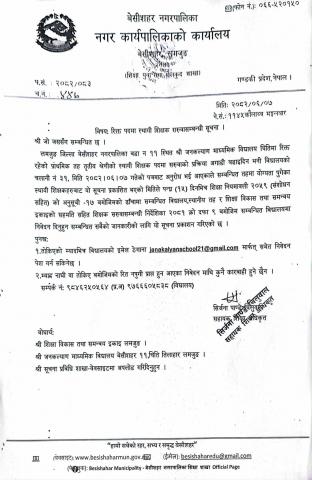 फोन नं.: ०६६-५२०१५०
बेसीशहर नगरपालिका
नगर कार्यपालिकाको कार्यालय
बेसीशहर, लमजुङ
(शिक्षा युवा तथा खेलकुद शाखा)
गण्डकी प्रदेश, नेपाल।
प.सं. : २०८२/०८३
च.नं. : ४४६
मिति: २०८२/०६/०७
ने.सं.: ११४५ कौलाथ्व
विषय: रिक्त पदमा स्थायी शिक्षक सरुवासम्बन्धी सूचना ।
श्री जो जससँग सम्बन्धित ।
लमजुङ जिल्ला बेसीशहर नगरपालिका वडा न ११ स्थित श्री जनकल्याण माध्यमिक विद्यालय चितिमा रिक्त
रहेको प्राथमिक तह तृतीय श्रेणीको स्थायी शिक्षक पदमा सरुवाको प्रक्रिया अगाडी बढाइदिन भनी विद्यालयको
चलानी नं ३१, मिति २०८२/०६/०७ गतेको पत्रबाट अनुरोध भई आएकाले सम्बन्धित तहमा योग्यता पुगेका
शिक्षकहरुबाट यो सूचना प्रकाशित भएको मितिले पन्ध्र (१५) दिनभित्र शिक्षा नियमावली २०५९ (संशोधन
सहित) को अनुसूची -१७ बमोजिमको ढाँचामा सम्बन्धित विद्यालय,स्थानीय तह र शिक्षा विकास तथा समन्वय
इकाइको सहमति सहित शिक्षक सरुवासम्बन्धी निर्देशिका २०८१ को दफा ९ बमोजिम सम्बन्धित विद्यालयमा
निवेदन दिनुहुन सम्बन्धित सबैको जानकारीको लागि यो सूचना प्रकाशन गरिएको छ ।
पुनश्च:
१.तोकिएको म्यादभित्र विद्यालयको इमेल ठेगाना janakalyanschool21@gmail.com मार्फत् समेत निवेदन
पेश गर्न सकिनेछ ।
२.म्याद नाघी वा तोकिए बमोजिमको रित नपुगी प्राप्त हुन आएका निवेदन माथि कुनै कारबाही हुने छैन ।
सम्पर्क नं: ९८४६२५०५६४ (प्र.अ) ९७६६६०५८२८ (विद्यालय)
सहायक शिक्षा अधिकृत
बोधार्थ:
श्री शिक्षा विकास तथा समन्वय इकाइ लमजुङ ।
श्री जनकल्याण माध्यमिक विद्यालय बेसीशहर ११,चिति तिलाहार लमजुङ ।
श्री सूचना प्रविधि शाखा-वेबसाइटमा अपलोड गरिदिनुहुन ।
"हाम्रो सबैको रहर, सभ्य र समृद्ध बेसीशहर"
(वेबसाइट): www.besishaharmun.gov.np (ईमेल): besishaharedu@gmail.com
(फेसबुक): Besishahar Municipality - बेसीशहर नगरपालिका शिक्षा शाखा Official Page